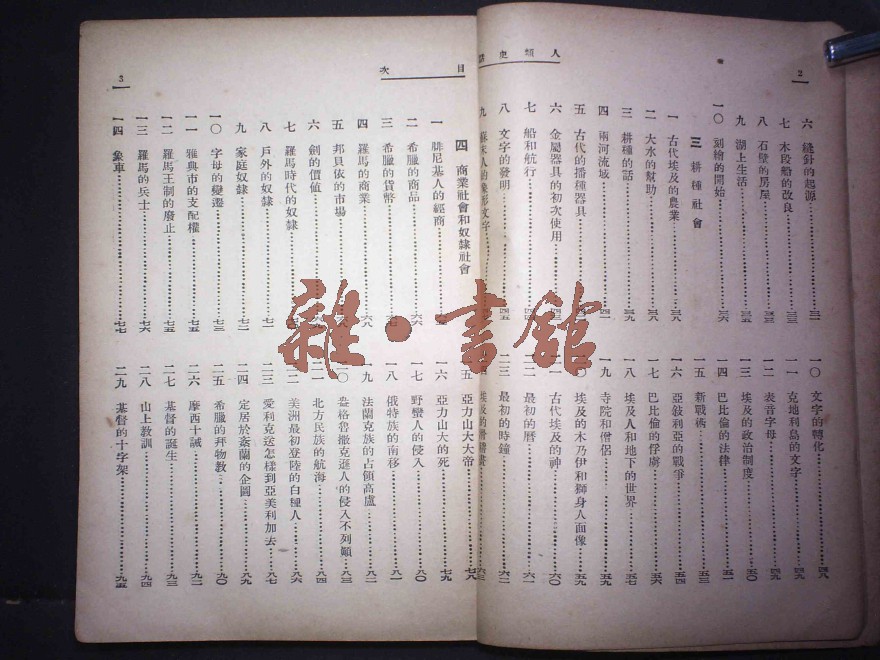 2
人類史話
六　縫針的起源…………三二
七　木段船的改良…………三三
八　石壁的房屋…………三三
九　湖上生活…………三五
一〇　刻繪的開始…………三六
三　耕種社會
一　古代埃及的農業…………三八
二　大水的幫助…………三八
三　耕種的話…………三九
四　兩河流域…………四一
五　古代的播種器具…………
六　金屬器具的初次使用…………
七　船和航行…………
八　文字的發明…………四五
九　蘇末人的象形文字…………
一〇　文字的轉化…………四八
一一　克地利島的文字…………四九
一二　表音字母…………四九
一三　埃及的政治制度…………五〇
一四　巴比倫的法律…………五一
一五　新戰術…………五三
一六　亞敍利亞的戰爭…………五四
一七　巴比倫的俘虜…………五六
一八　埃及人和地下的世界…………五七
一九　寺院和僧侶…………五九
二〇　埃及的木乃伊和獅身人面像…………五九
二一　古代埃及的神…………六〇
二二　最初的曆…………六一
二三　最初的時鐘…………六二
埃及的…………六三
目次
3
四　商業社會和奴隸社會
一　腓尼基人的經商…………
二　希臘的商品…………六六
三　希臘的貨幣…………
四　羅馬的商業…………六八
五　邦貝依的市場…………
六　劍的價値…………
七　羅馬時代的奴隸…………
八　戶外的奴隸…………七一
九　家庭奴隸…………
一〇　字母的變遷…………七三
一一　雅典市的支配權…………七五
一二　羅馬王制的廢止…………七五
一三　羅馬的兵士…………七六
一四　象車…………七七
一五　亞力山大大帝…………七八
一六　亞力山大的死…………七九
一七　野蠻人的侵入…………八〇
一八　俄特族的南移…………八一
一九　法蘭克族的占領高盧…………
二〇　盎格魯撒克遜人的侵入不列顚…………八三
二一　北方民族的航海…………八四
二二　美洲最初登陸的白種人…………八六
二三　愛利克送怎樣到亞美利加去…………八七
二四　定居於亲蘭的企圖…………八九
二五　希臘的拜物教…………九〇
二六　摩西十誡…………九二
二七　基督的誕生…………九三
二八　山上教訓…………九四
二九　基督的十字架…………九五
雜·書館